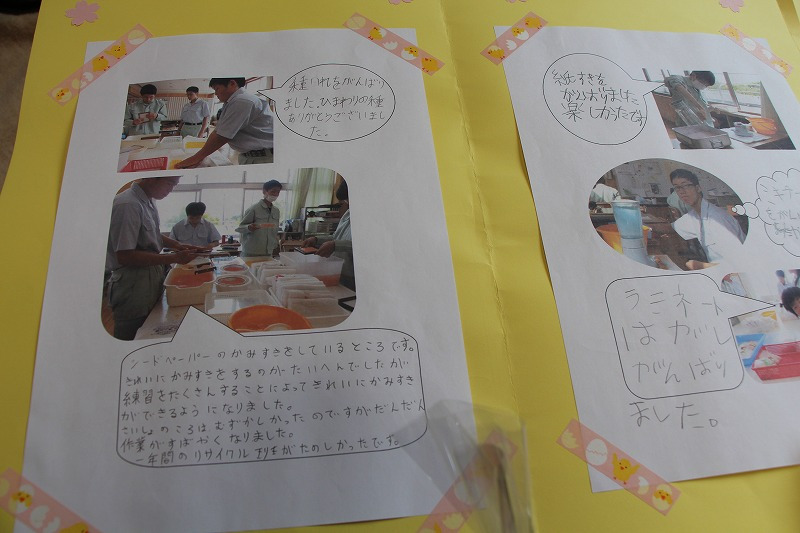 種いれをがんばり
ました。ひまわりの種
ありがとうございまし
た。
シードペーパーのかみすきをしているところです。
きれいにかみすきをするのがたいへんでしたが
練習をたくさんすることによってきれいにかみすき
ができるようになりました。
さいしょのころはむずかしかったのですがだんだん
作業がすばやくなりました。
一年間のリサイクル
がたのしかったです。
紙すきを
がんばりました
楽しかったです
ミキサー
ラミネート
はがし
がんばり
ました。